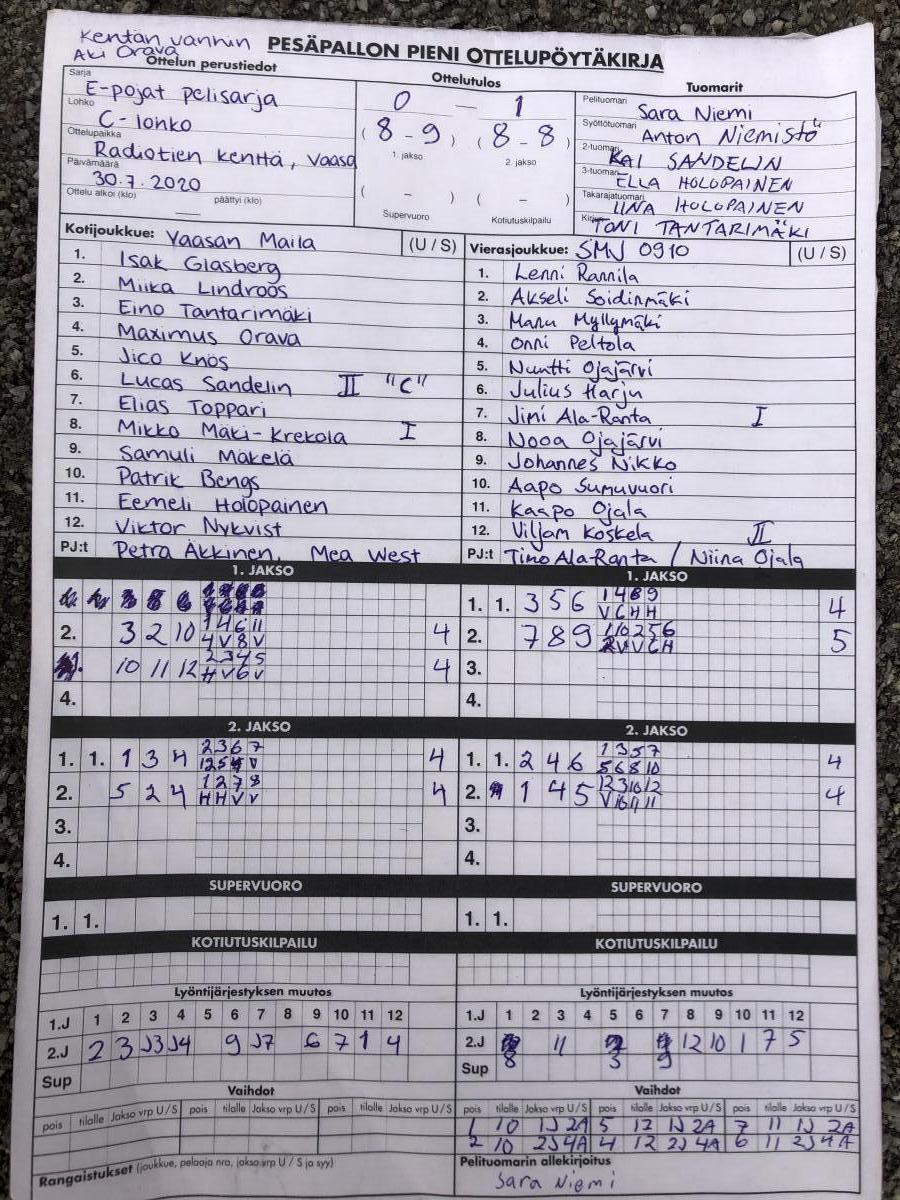 Kentän vanhin
Aki Orava
PESÄPALLON PIENI OTTELUPÖYTÄKIRJA
Ottelun perustiedot
Sarja
E-pojat pelisarja
Lohko
C-lohko
Ottelupaikka
Radiotien kenttä, Vaasa
Päivämäärä
30.7.2020
Ottelu alkoi (klo) päättyi (klo)
Ottelutulos
0 — 1
(8 - 9) (8 - 8)
1. jakso 2. jakso
( - ) ( - )
Supervuoro Kotiutuskilpailu
Tuomarit
Pelituomari Sara Niemi
Syöttötuomari Anton Niemistö
2-tuomari KAI SANDELIN
3-tuomari ELLA HOLOPAINEN
Takarajatuomari IINA HOLOPAINEN
Kirjuri TONI TANTARIMÄKI
Kotijoukkue: Vaasan Maila (U / S)
1. Isak Glasberg
2. Miika Lindroos
3. Eino Tantarimäki
4. Maximus Orava
5. Jico Knös
6. Lucas Sandelin II "C"
7. Elias Toppari
8. Mikko Mäki-Krekola I
9. Samuli Mäkelä
10. Patrik Bengs
11. Eemeli Holopainen
12. Viktor Nykvist
PJ:t Petra Äkkinen, Mea West
Vierasjoukkue: SMJ 0910 (U / S)
1. Lenni Rannila
2. Akseli Soidinmäki
3. Manu Myllymäki
4. Onni Peltola
5. Nuutti Ojajärvi
6. Julius Harju
7. Jimi Ala-Ranta I
8. Nooa Ojajärvi
9. Johannes Nikko
10. Aapo Sumuvuori
11. Kaapo Ojala
12. Viljam Koskela II
PJ:t Timo Ala-Ranta / Niina Ojala
1. JAKSO
2. 3 2 10 1 4 6 11 4
4 V 8 V
10 11 12 2 3 4 5 4
H V 6 V
4.
1. JAKSO
1. 1. 3 5 6 1 4 8 9 4
V C H H
2. 7 8 9 1 10 2 5 6 5
V V C H
3.
4.
2. JAKSO
1. 1. 1 3 4 2 3 6 7 4
2. 5 2 4 1 2 7 8 4
H H V V
3.
4.
2. JAKSO
1. 1. 2 4 6 1 3 5 7 4
5 6 8 10
2. 1 4 5 12 3 10 12 4
V 10 11 11
3.
4.
SUPERVUORO
1. 1.
SUPERVUORO
1. 1.
KOTIUTUSKILPAILU
KOTIUTUSKILPAILU
Lyöntijärjestyksen muutos
1.J 1 2 3 4 5 6 7 8 9 10 11 12
2.J 2 3 J3 J4 9 J7 6 7 1 4
Sup
Lyöntijärjestyksen muutos
1.J 1 2 3 4 5 6 7 8 9 10 11 12
2.J 8 11 3 9 12 10 1 7 5
Sup
Vaihdot
pois tilalle Jakso vrp U/S pois tilalle Jakso vrp U/S pois tilalle Jakso vrp U/S
Vaihdot
pois tilalle Jakso vrp U/S pois tilalle Jakso vrp U/S pois tilalle Jakso vrp U/S
1 10 1J 2A 5 12 1J 2A 7 11 1J 2A
2 10 2J 4A 4 12 2J 4A 6 11 2J 4A
Rangaistukset (joukkue, pelaaja nro, jakso vrp U / S ja syy)
Pelituomarin allekirjoitus
Sara Niemi